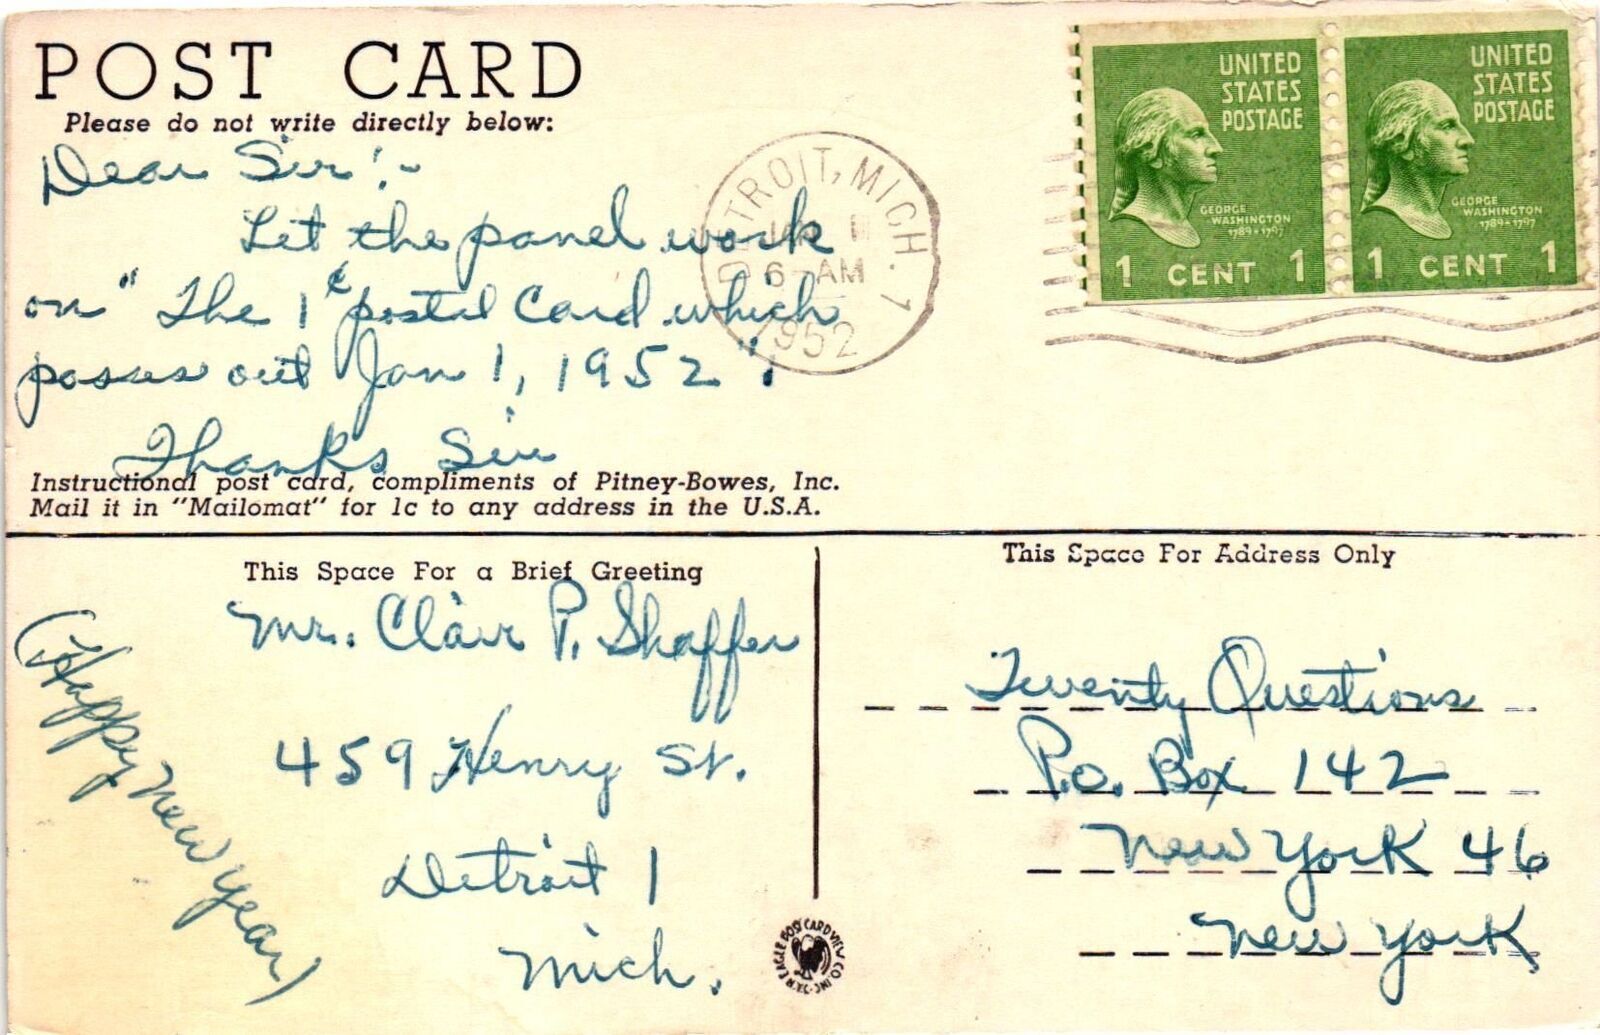 POST CARD
Please do not write directly below:
Dear Sir:-
Let the panel work
on "The 1¢ postal Card which
passes out Jan 1, 1952"!
Thanks Sir
Instructional post card, compliments of Pitney-Bowes, Inc.
Mail it in "Mailomat" for 1c to any address in the U.S.A.
DETROIT, MICH. 1
6 - AM
1952
UNITED
STATES
POSTAGE
GEORGE
WASHINGTON
1789-1797
1 CENT 1
UNITED
STATES
POSTAGE
GEORGE
WASHINGTON
1789-1797
1 CENT 1
This Space For a Brief Greeting
(Happy New Year)
Mr. Clair P. Shaffer
459 Henry St.
Detroit 1
Mich.
EAGLE POST CARD VIEW CO. INC. N.Y.C.
This Space For Address Only
Twenty Questions
P.O. Box 142
New York 46
New York